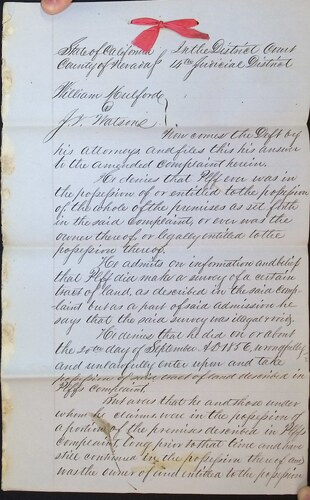 State of California } In the District Court
County of Nevada } 14th Judicial District
William Mulford
vs
J. Watson
Now comes the Deft by
his Attorneys and files this his answer
to the amended Complaint herein.
He denies that Plff ever was in
the possession of or entitled to the possession
of the whole of the premises as set forth
in the said Complaint, or ever was the
owner thereof or legally entitled to the
possession thereof.
He admits on information and belief
that Plff did make a survey of a certain
tract of land, as described in the said Comp-
laint but as a part of said Admission he
says that the said survey was illegal & void.
He denies that he did on or about
the 20th day of September AD 1856, wrongfully
and unlawfully enter upon and take
possession of said tract of land described in
Plffs Complaint.
But avers that he and those under
whom he claims were in the possession of
a portion of the premises described in Plffs
Complaint long prior to that time and have
still continued in the possession thereof and
was the owner of and entitled to the possession